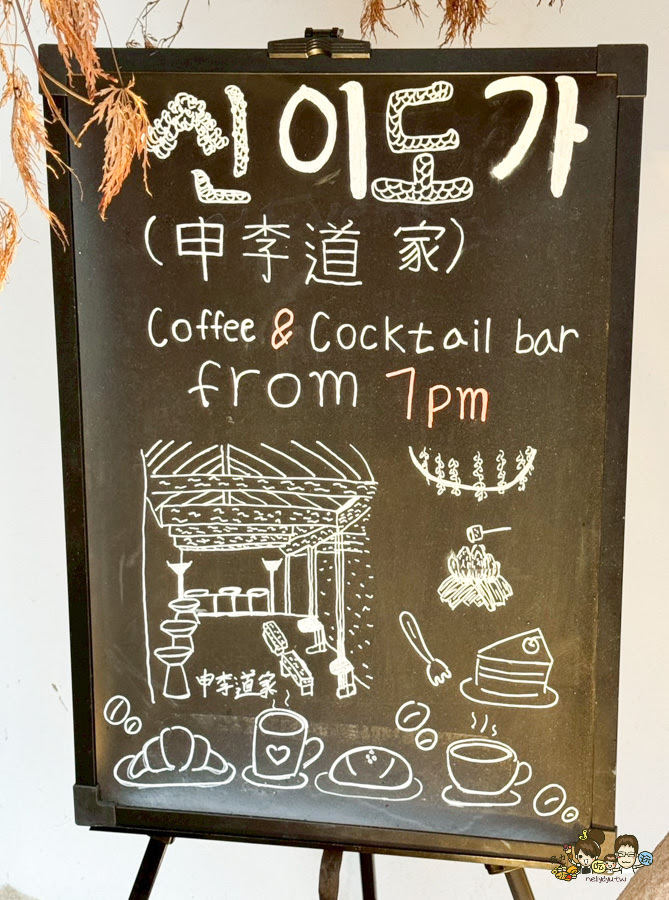 신이도가
(申李道家)
Coffee & Cocktail bar
from 7pm
申李道家
nellydyu.tw